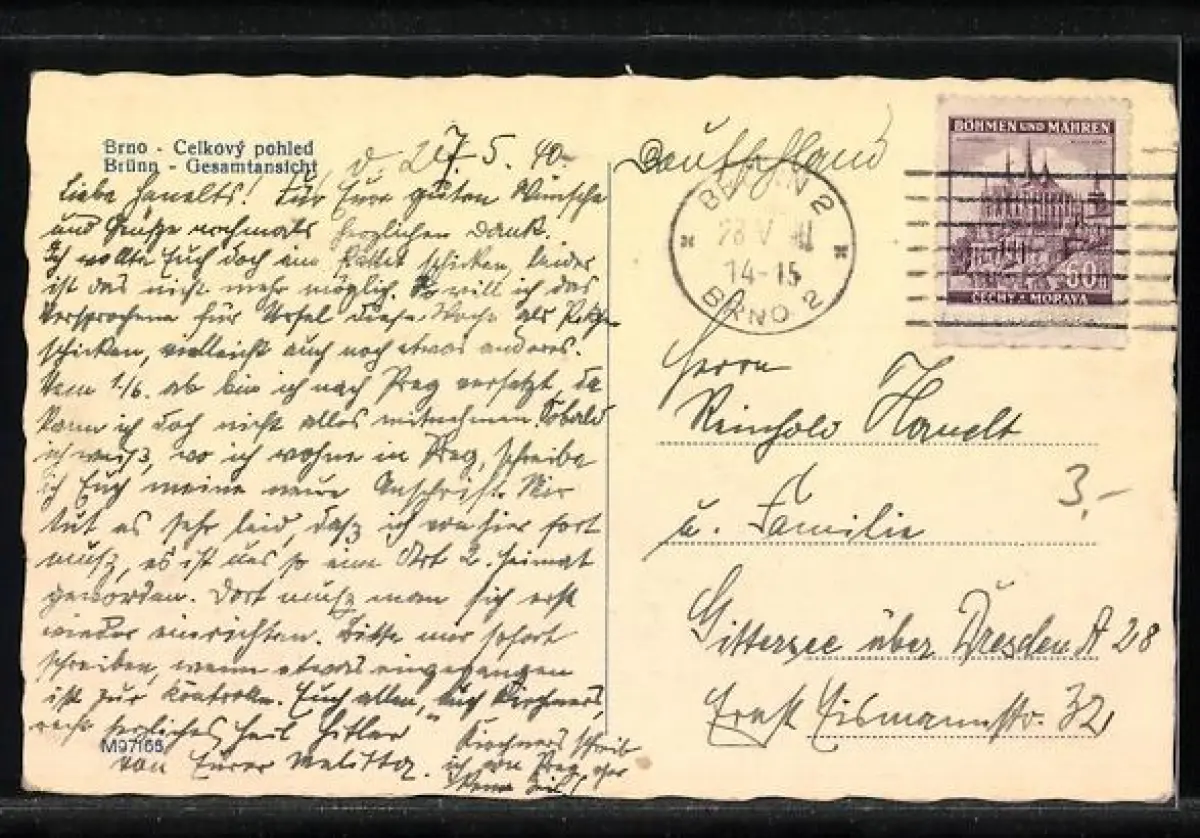 Brno - Celkový pohled
Brünn - Gesamtansicht
d. 27.5.40.
Liebe Hanelts! Für Eure guten Wünsche
und Grüße nochmals herzlichen Dank.
Ich wollte Euch doch ein schicken, leider
ist das nicht mehr möglich. So will ich das
Versprochene für Ursel diese Woche als
schicken, vielleicht auch noch etwas anderes.
Vom 1./6. ab bin ich nach Prag versetzt, da
kann ich doch nicht alles mitnehmen. Sobald
ich weiß, wo ich wohne in Prag, schreibe
ich Euch meine neue Anschrift. Mir
tut es sehr leid, daß ich von hier fort
muß, es ist uns so eine Art 2. Heimat
geworden. Dort muß man sich erst
wieder einrichten. Bitte nur sofort
schreiben, wenn etwas eingegangen
ist zur Kontrolle. Euch allen, auch Kirchners,
recht herzliches Heil Hitler
von Eurer Melitta.
Kirchners schreib
ich von Prag,
M97165
Deutschland
BRÜNN 2
28 V 40
14-15
BRNO 2
BÖHMEN UND MÄHREN
60h
ČECHY A MORAVA
Herrn
Reinhold Hanelt
u. Familie
3,-
Gittersee über Dresden A 28
Ernst Eismannstr. 32